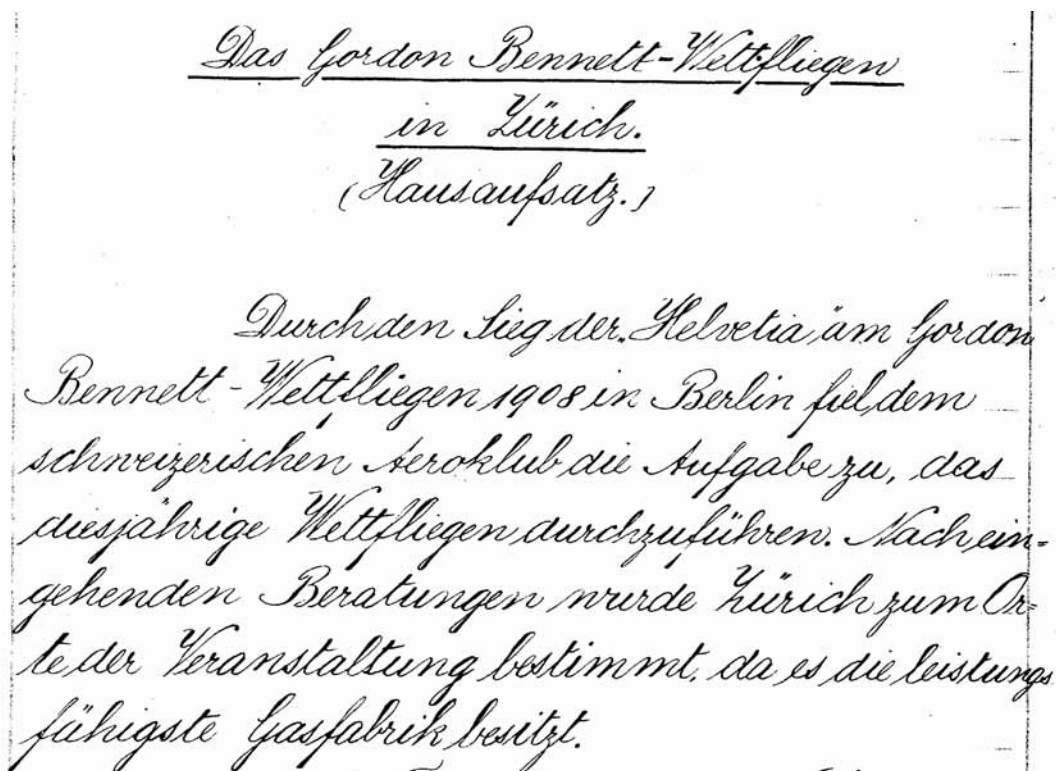 Das Gordon Bennett-Wettfliegen
in Zürich.
(Hausaufsatz.)
Durch den Sieg der „Helvetia" am Gordon
Bennett-Wettfliegen 1908 in Berlin fiel dem
schweizerischen Aeroklub die Aufgabe zu, das
diesjährige Wettfliegen durchzuführen. Nach ein=
gehenden Beratungen wurde Zürich zum Or=
te der Veranstaltung bestimmt, da es die leistungs
fähigste Gasfabrik besitzt.